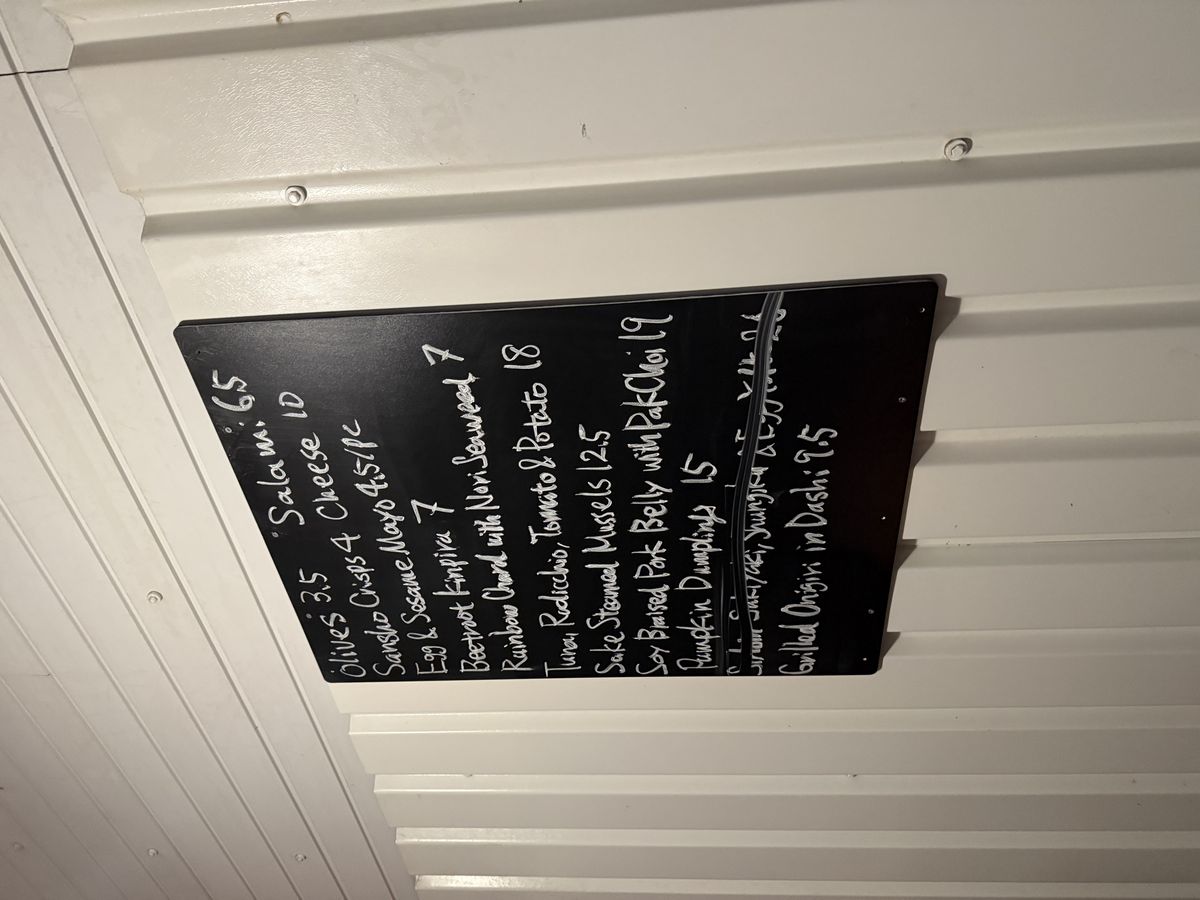 Olives 3.5 Salami 6.5
Sansho Crisps 4 Cheese 10
Egg & Sesame Mayo 4.5/pc
Beetroot Kinpira 7
Rainbow Chard with Nori Seaweed 7
Tuna, Radicchio, Tomato & Potato 18
Sake Steamed Mussels 12.5
Soy Braised Pork Belly with Pak Choi 19
Pumpkin Dumplings 15
& Egg Yolk 26
Grilled Onigiri in Dashi 9.5